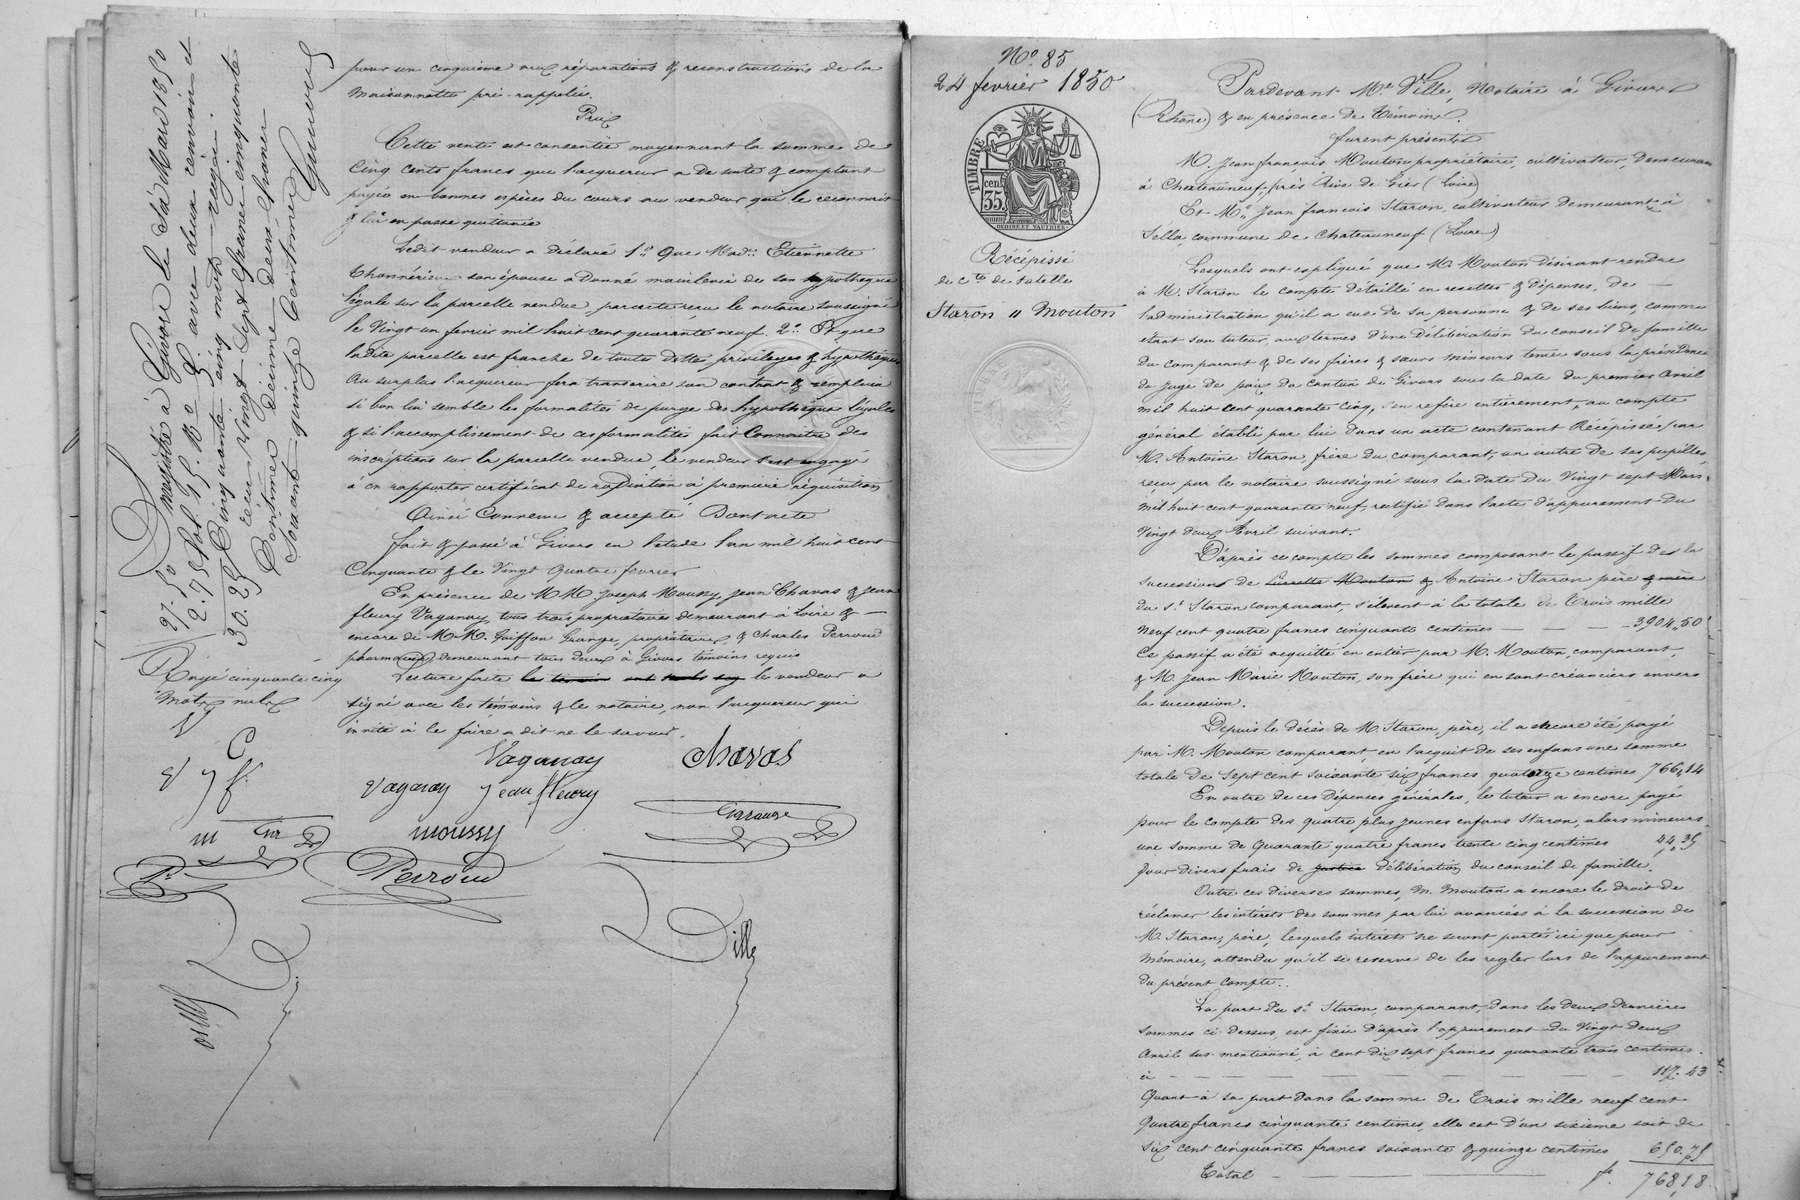 pour un cinquième aux réparations & reconstructions de la
Maisonnette pré-rappelée.
Prix
Cette vente est consentie moyennant la somme de
Cinq cents francs que l'acquéreur a de suite & comptant
payée en bonnes espèces du cours au vendeur qui le reconnait
& lui en passe quittance
Ledit vendeur a déclaré 1.° Que Mad.e Etiennette
son épouse a donné mainlevée de son hypothèque
légale sur la parcelle vendue par acte reçu le notaire soussigné
le Vingt un fevrier mil huit cent quarante neuf. 2.° Et que
ladite parcelle est franche de toutes dettes, privilèges & hypothèques
Au surplus l'acquéreur fera transcrire son contrat & remplira
si bon lui semble les formalités de purge des hypothèques légales
& si l'accomplissement de ces formalités fait connaitre des
inscriptions sur la parcelle vendue, le vendeur s'est engagé
à en rapporter certificat de radiation à première réquisition
Ainsi Convenu & accepté Dont acte
fait & passé à Givors en l'étude l'an mil huit cent
Cinquante & le Vingt quatre fevrier
En présence de M.M. Joseph Moussy, Jean Chavas & Jean
fleury Vaganay, tous trois propriétaires demeurant à Loire &
encore de M.M. Goiffon Grange, propriétaire & Charles Perroud
pharmacien demeurant tous deux à Givors témoins requis
Lecture faite le vendeur a
signé avec les témoins & le notaire, non l'acquéreur qui
invité à le faire a dit ne le savoir.
Vaganay chavas
Vaganay jean fleury
moussy Grange
Perroud
Ville
Enregistré à Givors le Mars 1850
fol. 75. R.° C. 5 avec deux renvois et
Cinquante cinq mots rayés.
reçu Vingt sept francs cinquante
Centimes décime deux francs
soixante quinze centimes
27. 50
2. 75
30. 25
Rayé cinquante cinq
mots nuls
V C
V j f.
m Gr
P.
Ville
N.° 85
24 fevrier 1850
TIMBRE
cen.
35.
OUDINÉ ET VAUTHIER
Récépissé
de c.te de tutelle
Staron " Mouton
Pardevant M.e Ville, Notaire à Givors
(Rhône) & en présence de témoins.
furent présents
M. Jean françois Mouton propriétaire, cultivateur, demeurant
à Chateauneuf, près Rive de Gier (Loire)
Et M. Jean françois Staron, cultivateur demeurant à
commune de Chateauneuf (Loire)
Lesquels ont expliqué que M. Mouton désirant rendre
à M. Staron le compte détaillé en recettes & dépenses, de
l'administration qu'il a eue de sa personne & de ses biens, comme
étant son tuteur, aux termes d'une délibération du conseil de famille
du comparant & de ses frères & sœurs mineurs tenue sous la présidence
du Juge de paix du canton de Givors sous la date du premier Avril
mil huit cent quarante cinq, s'en refère entièrement, au compte
général établi par lui dans un acte contenant Récépissé par
M. Antoine Staron, frère du comparant, un autre de ses pupilles,
reçu par le notaire soussigné sous la date du Vingt sept Mars
mil huit cent quarante neuf, rectifié dans l'acte d'appurement du
Vingt deux Avril suivant.
D'après ce compte les sommes composant le passif de la
succession de Pierrette Mouton & Antoine Staron père & mère
du s.r Staron comparant, s'élevent à la totale de Trois mille
neuf cent quatre francs cinquante centimes 3904,50
Ce passif a été acquitté en entier par M. Mouton, comparant,
& M. Jean Marie Mouton, son frère qui en sont créanciers envers
la succession.
Depuis le décès de M. Staron, père, il a encore été payé
par M. Mouton comparant, en l'acquit de ses enfans une somme
totale de sept cent soixante six francs quatorze centimes 766,14
En outre de ces dépenses générales, le tuteur a encore payé
pour le compte des quatre plus jeunes enfans Staron, alors mineurs
une somme de Quarante quatre francs trente cinq centimes 44,35
pour divers frais de justice délibération du conseil de famille.
Outre ces diverses sommes, M. Mouton a encore le droit de
réclamer les intérêts des sommes par lui avancées à la succession de
M. Staron, père, lesquels intérêts ne seront portés ici que pour
mémoire, attendu qu'il se reserve de les regler lors de l'appurement
du présent compte.
La part du s.r Staron, comparant, dans les deux dernières
sommes ci-dessus, est fixée d'après l'appurement du Vingt deux
Avril sus-mentionné, à cent dix sept francs quarante trois centimes
ci 117. 43
Quant à sa part dans la somme de Trois mille neuf cent
quatre francs cinquante centimes, elle est d'un sixième soit de
six cent cinquante francs soixante & quinze centimes 650. 75
Total f. 768,18.